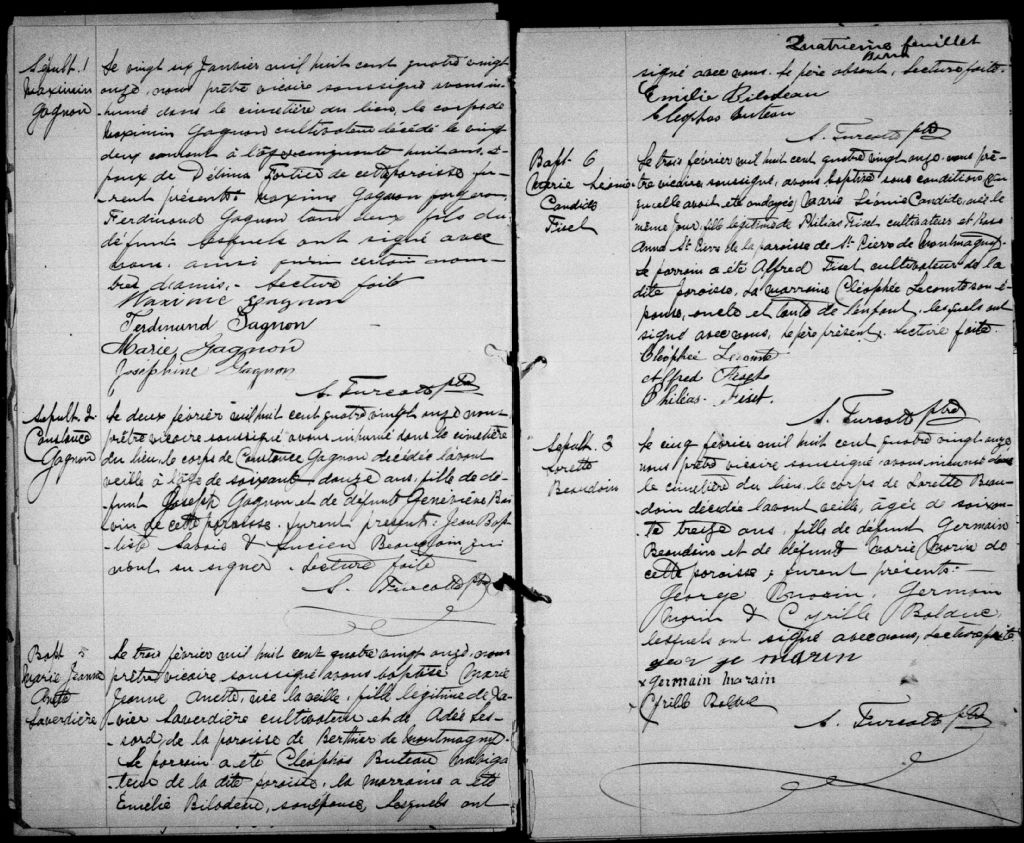 Sépult. 1
Maximin
Gagnon
Le vingt six Janvier mil huit cent quatre vingt
onze, nous prêtre vicaire soussigné avons in-
humé dans le cimetière du lieu, le corps de
Maximin Gagnon cultivateur décédé le vingt
deux courant à l'âge cinquante huit ans, é-
poux de Délima Fortier de cette paroisse fu-
rent présents: Maxime Gagnon
Ferdinand Gagnon tous deux fils du
défunt lesquels ont signé avec
nous. ainsi qu'un certain nom-
bres d'amis. - Lecture faite
Maxime Gagnon
Ferdinand Gagnon
Marie Gagnon
Josephine Gagnon
A. Turcotte ptre
Sepult. 2
Constance
Gagnon
Le deux février mil huit cent quatre vingt onze nous
prêtre vicaire soussigné avons inhumé dans le cimetière
du lieu, le corps de Constance Gagnon décédée l'avant
veille à l'âge de soixante douze ans, fille de dé-
funt Joseph Gagnon et de défunte Geneviève Boi
vin de cette paroisse. furent présent: Jean Bap-
tiste Savoie & Lucien Beaudoin, qui
n'ont su signer. Lecture faite
A. Turcotte ptre
Bapt 5
Marie Jeanne
Anette
Laverdière
Le trois février mil huit cent quatre vingt onze, nous
prêtre vicaire soussigné avons baptisé Marie
Jeanne Anette, née la veille, fille légitime de Xa-
vier Laverdière cultivateur et de Adée Les-
sard de la paroisse de Berthier de Montmagny.
Le parrain a été Cléophas Buteau naviga
teur de la dite paroisse, la marraine a été
Emélie Bilodeau, son épouse, lesquels ont
Quatrième feuillet
signé avec nous. le père absent, Lecture faite.
Emélie Bilodeau
Cléophas Buteau
A. Turcotte ptre
Bapt 6
Marie Léonie
Candide
Fiset
Le trois février mil huit cent quatre vingt onze. nous prê-
tre vicaire soussigné, avons baptisé sous condition
qu'elle avait été ondoyée) Marie Léonie Candide, née le
même jour, fille légitime de Philias Fiset cultivateur et Rose
Anna St Pierre de la paroisse de St Pierre de Montmagny.
Le parrain a été Alfred Fiset cultivateur de la
dite paroisse, La marraine Cléophée Lecomte son é-
pouse, oncle et tante de l'enfant, lesquels ont
signé avec nous, le père présent. Lecture faite.
Cléophée Lecomte
Alfred
Philias Fiset.
A. Turcotte ptre
Sepult. 3
Lorette
Beaudoin
Le cinq février mil huit cent quatre vingt onze
nous prêtre vicaire soussigné avons inhumé dans
le cimetière du lieu le corps de Lorette Beau-
doin décédée l'avant veille, âgée de soixan-
te treize ans, fille de défunt Germain
Beaudoin et de défunte Marie Morin de
cette paroisse; furent présents: -
George Morin, Germain
Morin & Cyrille Bolduc,
lesquels ont signé avec nous, Lecture faite
geor ge marin
x germain marain
Cyrille Bolduc
A. Turcotte ptre